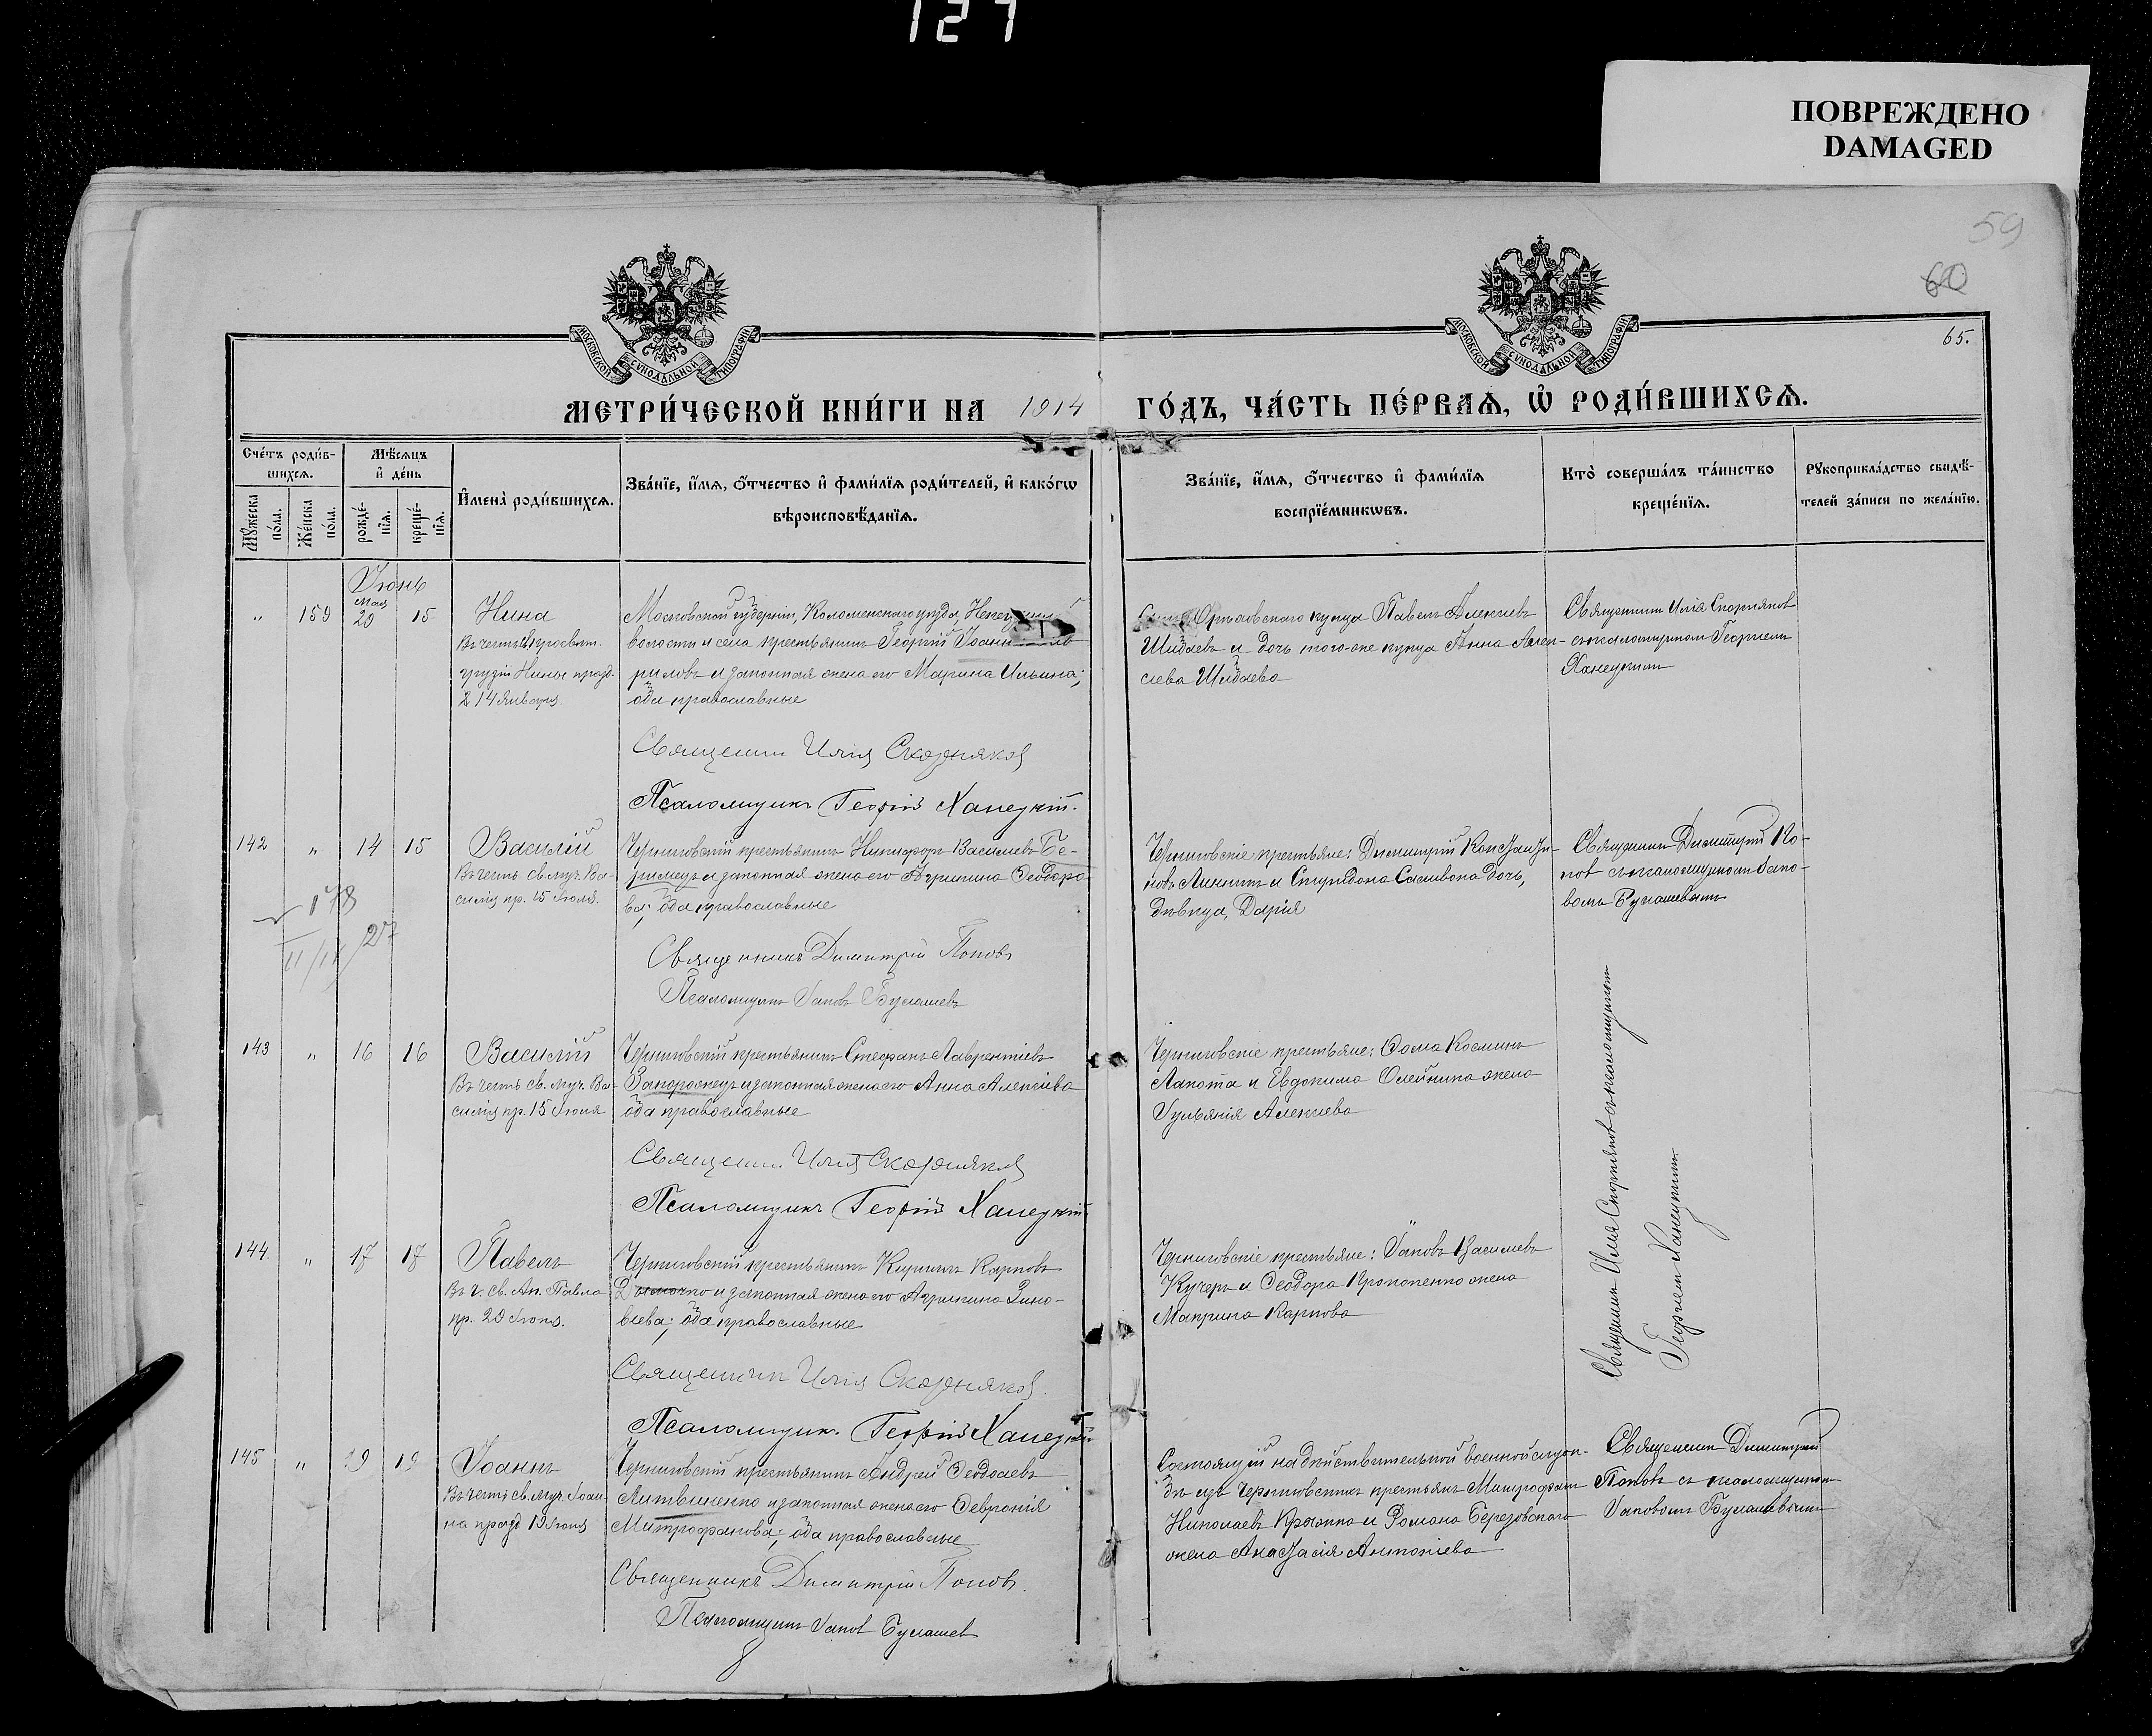 127
ПОВРЕЖДЕНО
DAMAGED
59
60
65.
МОСКОВСКОЙ СѴНОДАЛЬНОЙ ТИПОГРАФІИ
МОСКОВСКОЙ СѴНОДАЛЬНОЙ ТИПОГРАФІИ
МЕТРИ́ЧЕСКОЙ КНИ́ГИ НА 1914 ГО́ДЪ, ЧА́СТЬ ПЕ́РВАѦ, Ѡ҆ РОДИ́ВШИХСѦ.
Сче́тъ роди́в-
шихсѧ.
Мꙋ́жеска
по́ла.
Же́нска
по́ла.
Мѣ́сѧцъ
и҆ де́нь
рожде́-
нїѧ.
креще́-
нїѧ.
И҆мена̀ роди́вшихсѧ.
Зва́нїе, и҆́мѧ, ѻ҆́тчество и҆ фами́лїѧ роди́телей, и҆ како́гѡ
вѣроисповѣ́данїѧ.
Зва́нїе, и҆́мѧ, ѻ҆́тчество и҆ фами́лїѧ
воспрїе́мникѡвъ.
Кто̀ соверша́лъ та́инство
креще́нїѧ.
Рꙋкоприкла́дство свидѣ́-
телей за́писи по жела́нїю.
Іюнь
" 159 Мая 29 15 Нина
Въ честь просвѣт.
грузіи Нины празд.
14 января.
Московской губерніи, Коломенскаго уѣзда,
волости и села крестьянинъ Георгій
риловъ и законная жена его Марина Ильина;
оба православные
Священник Илія Скорняков
Псаломщикъ Георгій Ханецкій.
купца Павелъ Алексіевъ
Шибаевъ и дочь того-же купца Анна Алек-
сіева Шибаева
Священник Илія Скорняков
съ псаломщиком Георгіем
Ханецким
142 " 14 15 Василій
Въ честь св. муч. Ва-
силія пр. 15 Іюля.
178
II/II 27
Черниговскій крестьянинъ Никифоръ Васильевъ
и законная жена его Агрипина Ѳеодоро-
ва; оба православные
Священникъ Димитрій Поповъ
Псаломщикъ Іаковъ Булашевъ
Черниговскіе крестьяне: Димитрій Константи-
новъ и Спиридона дочь,
дѣвица, Дарія
Священник Димитрій По-
пов съ псаломщиком Іако-
вомъ Булашевымъ
143 " 16 16 Василій
Въ честь св. муч. Ва-
силія пр. 15 Іюля
Черниговскій крестьянинъ Стефанъ Лаврентіевъ
Запорожецъ и законная жена его Анна Алексіева
оба православные
Священник Илія Скорняков
Псаломщикъ Георгій Ханецкій.
Черниговскіе крестьяне: Ѳома Косминъ
Лапота и Евдокима Олейника жена
Іульянія Алексіева
Священник Илія Скорняков съ псаломщиком
Георгіем Ханецким
144. " 17 17 Павелъ
Въ ч. св. Ап. Павла
пр. 29 Іюня.
Черниговскій крестьянинъ Кириллъ Карповъ
и законная жена его Агрипина Зино-
віева; оба православные
Священник Илія Скорняков.
Псаломщик. Георгій Ханецкій
Черниговскіе крестьяне: Іаковъ Васильевъ
Кучеръ и Ѳеодора Прокопенко жена
Макрина Карпова
145 " 19 19 Іоаннъ
Въ честь св. муч. Іоан-
на празд. 19 Іюня
Черниговскій крестьянинъ Андрей
Литвиненко и законная жена его Февронія
Митрофанова; оба православные
Священникъ Димитрій Попов.
Псаломщикъ Іаков Булашев
Состоящій на дѣйствительной военной служ-
бѣ изъ Черниговскихъ крестьянъ Митрофанъ
Николаевъ и Романа Березовскаго
жена Анастасія Антоніева
Священник Димитрій
Поповъ съ псаломщиком
Іаковомъ Булашевымъ